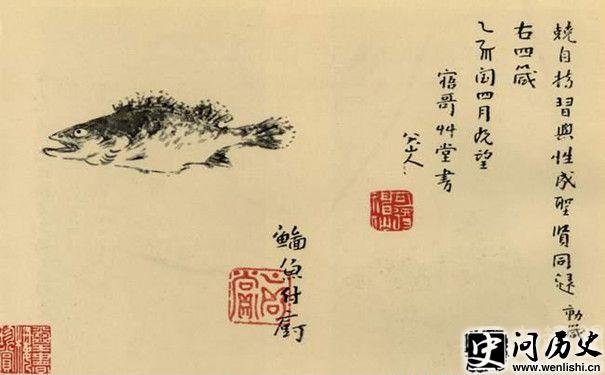 兢自持習與性成聖賢同歸 動箴
右四箴
乙亥閏四月既望
寤哥艸堂書
八大山人
魚付
问历史
www.wenlishi.cn